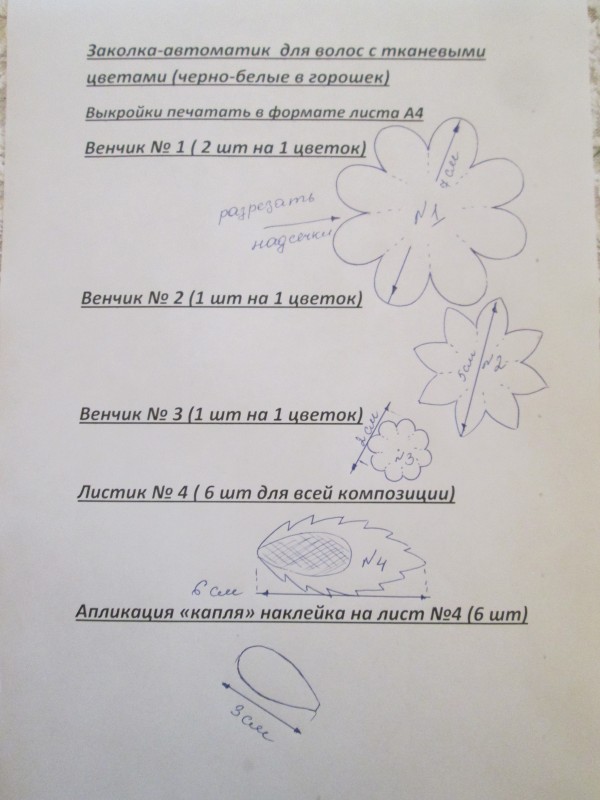 Заколка-автоматик для волос с тканевыми
цветами (черно-белые в горошек)
Выкройки печатать в формате листа А4
Венчик № 1 ( 2 шт на 1 цветок)
7 см
разрезать
надсечки
№1
Венчик № 2 (1 шт на 1 цветок)
5 см
№2
Венчик № 3 (1 шт на 1 цветок)
2 см
№3
Листик № 4 ( 6 шт для всей композиции)
№4
6 см
Апликация «капля» наклейка на лист №4 (6 шт)
3 см